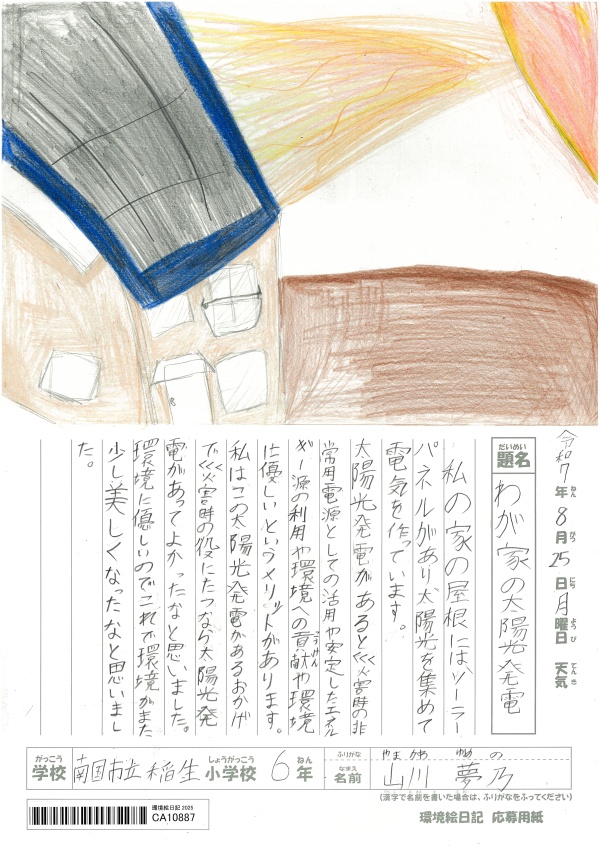 令和7年8月25日月曜日 天気
ねん がつ にち ようび てんき
だいめい
題名
わが家の太陽光発電
私の家の屋根にはソーラー
パネルがあり太陽光を集めて
電気を作っています。
太陽光発電があると災害時の非
常用電源としての活用や安定したエネル
ギー源の利用や環境への貢献や環境
こうけん
に優しいというメリットがあります。
私はこの太陽光発電があるおかげ
で災害時の役にたつなら太陽光発
電があってよかったなと思いました。
環境に優しいのでこれで環境がまた
少し美しくなったなと思いまし
た。
がっこう しょうがっこう ねん
学校 南国市立稲生小学校 6年
ふりがな やま かわ ゆめ の
なまえ
名前 山川 夢乃
(漢字で名前を書いた場合は、ふりがなをふってください)
環境絵日記 2025
CA10887
環境絵日記 応募用紙